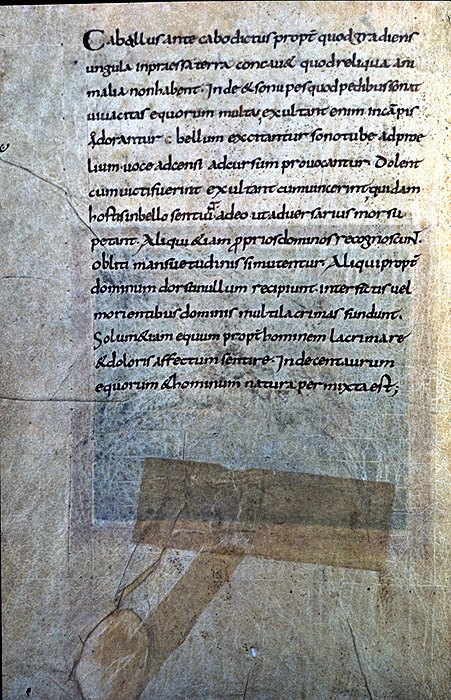 Caballus ante cabo dictus propt̄ quod gradiens
ungula inpraessa terra concau& quod reliqua ani
malia non habent. Inde & sonupes quod pedibus sonat
uiuacitas equorum multa, exultant enim incāpis
odorantur bellum excitantur sono tube ad proe
lium. uoce adcensi ad cursum prouocantur. Dolent
cum uicti fuerint exultant cum uincerint, quidam
hostis in bello sentiu adeo ut aduersarius morsu
petant. Aliqui &iam proprios dominos recognoscunt.
obliti mansuetudinis si mutentur. Aliqui propt̄
dominum dorso nullum recipiunt. interfectis uel
morientibus dominis multi lacrimas fundunt.
Solum &iam equum propt̄ hominem lacrimare
& doloris affectum sentire. Inde centaurum
equorum & hominum natura permixta est;